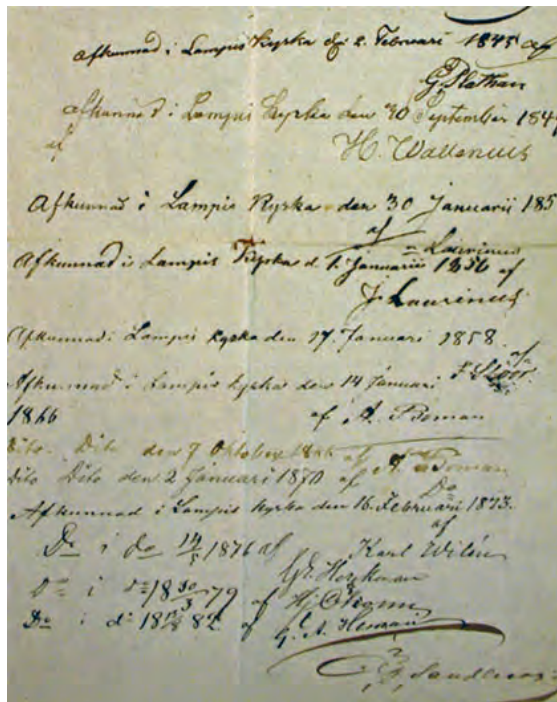 Afkunnad i Lampis kyrka den 2. Februari 1845 af
G. Plathan
afkunnad i Lampis Kyrka den 30 September 184
af H. Wallenius
Afkunnad i Lampis Kyrka den 30 Januarii 185
af Laurinus
Afkunnad i Lampis Kyrka d. 1. Januarii 1856 af
J. Laurinus
Afkunnad i Lampis kyrka den 17. Januari 1858.
af F.
Afkunnad i Lampis kyrka den 14 Januari
1866 af A. Boman
Dito. Dito den 7 Oktober 1866 af A. Boman
Dito Dito den 2 Januari 1870 af Do
Afkunnad i Lampis kyrka den 16. Februari 1873.
af
Karl Wilén
Do i do 1876 af
Gr.
Do i do 18 30/3 79 af Hj.
Do i do 18 82 af G. A. Heman
Sandberg